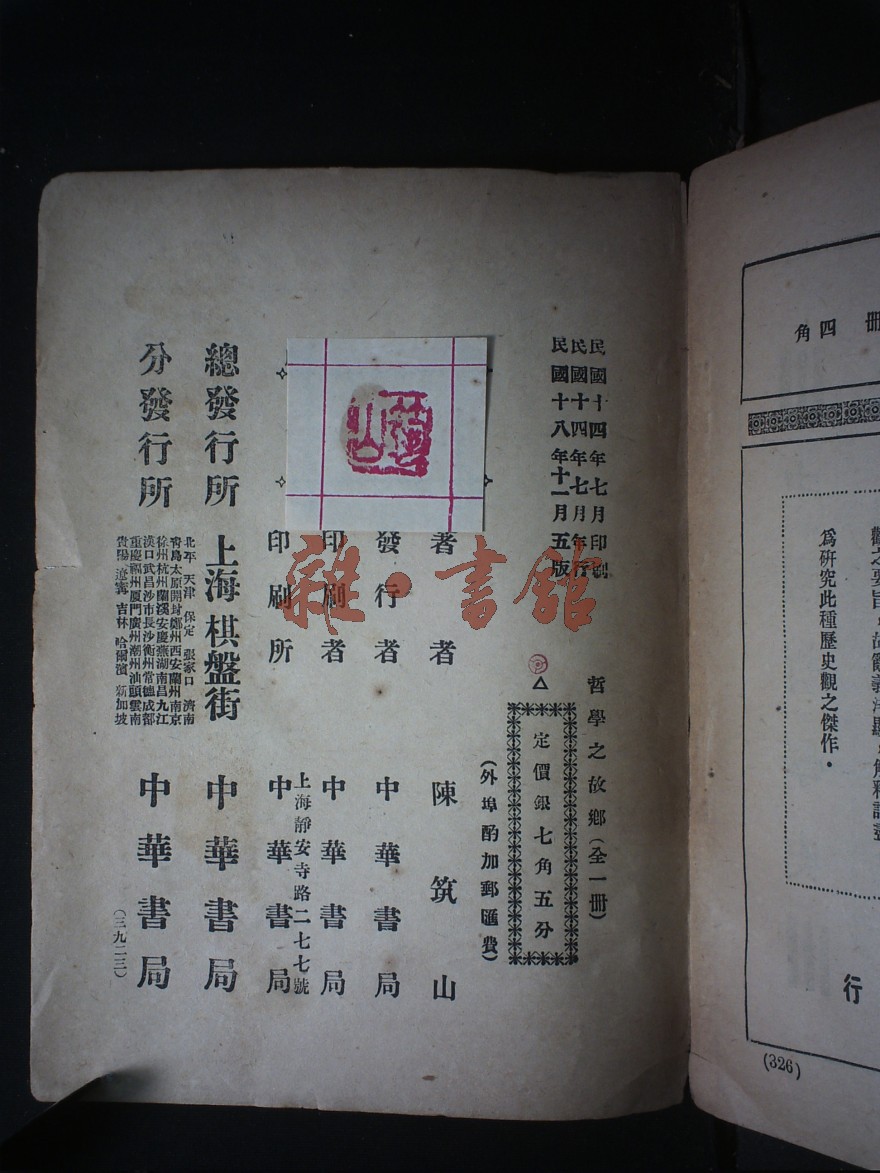 民國十四年七月印刷
民國十四年七月發行
民國十八年十一月五版
哲學之故鄉(全一册)
定價銀七角五分
(外埠酌加郵匯費)
著者 陳筑山
發行者 中華書局
印刷者 中華書局
上海靜安寺路二七七號
印刷所 中華書局
總發行所 上海棋盤街 中華書局
分發行所
北平 天津 保定 張家口 濟南
靑島太原開封鄭州西安蘭州南京
徐州杭州蘭溪安慶蕪湖南昌九江
漢口武昌沙市長沙衡州常德成都
重慶福州厦門廣州潮州汕頭雲南
貴陽 遼寧 吉林 哈爾濱 新加坡
中華書局
(三九二三)
雜·書館
册四角
爲研究此種歷史觀之傑作.
行
(326)